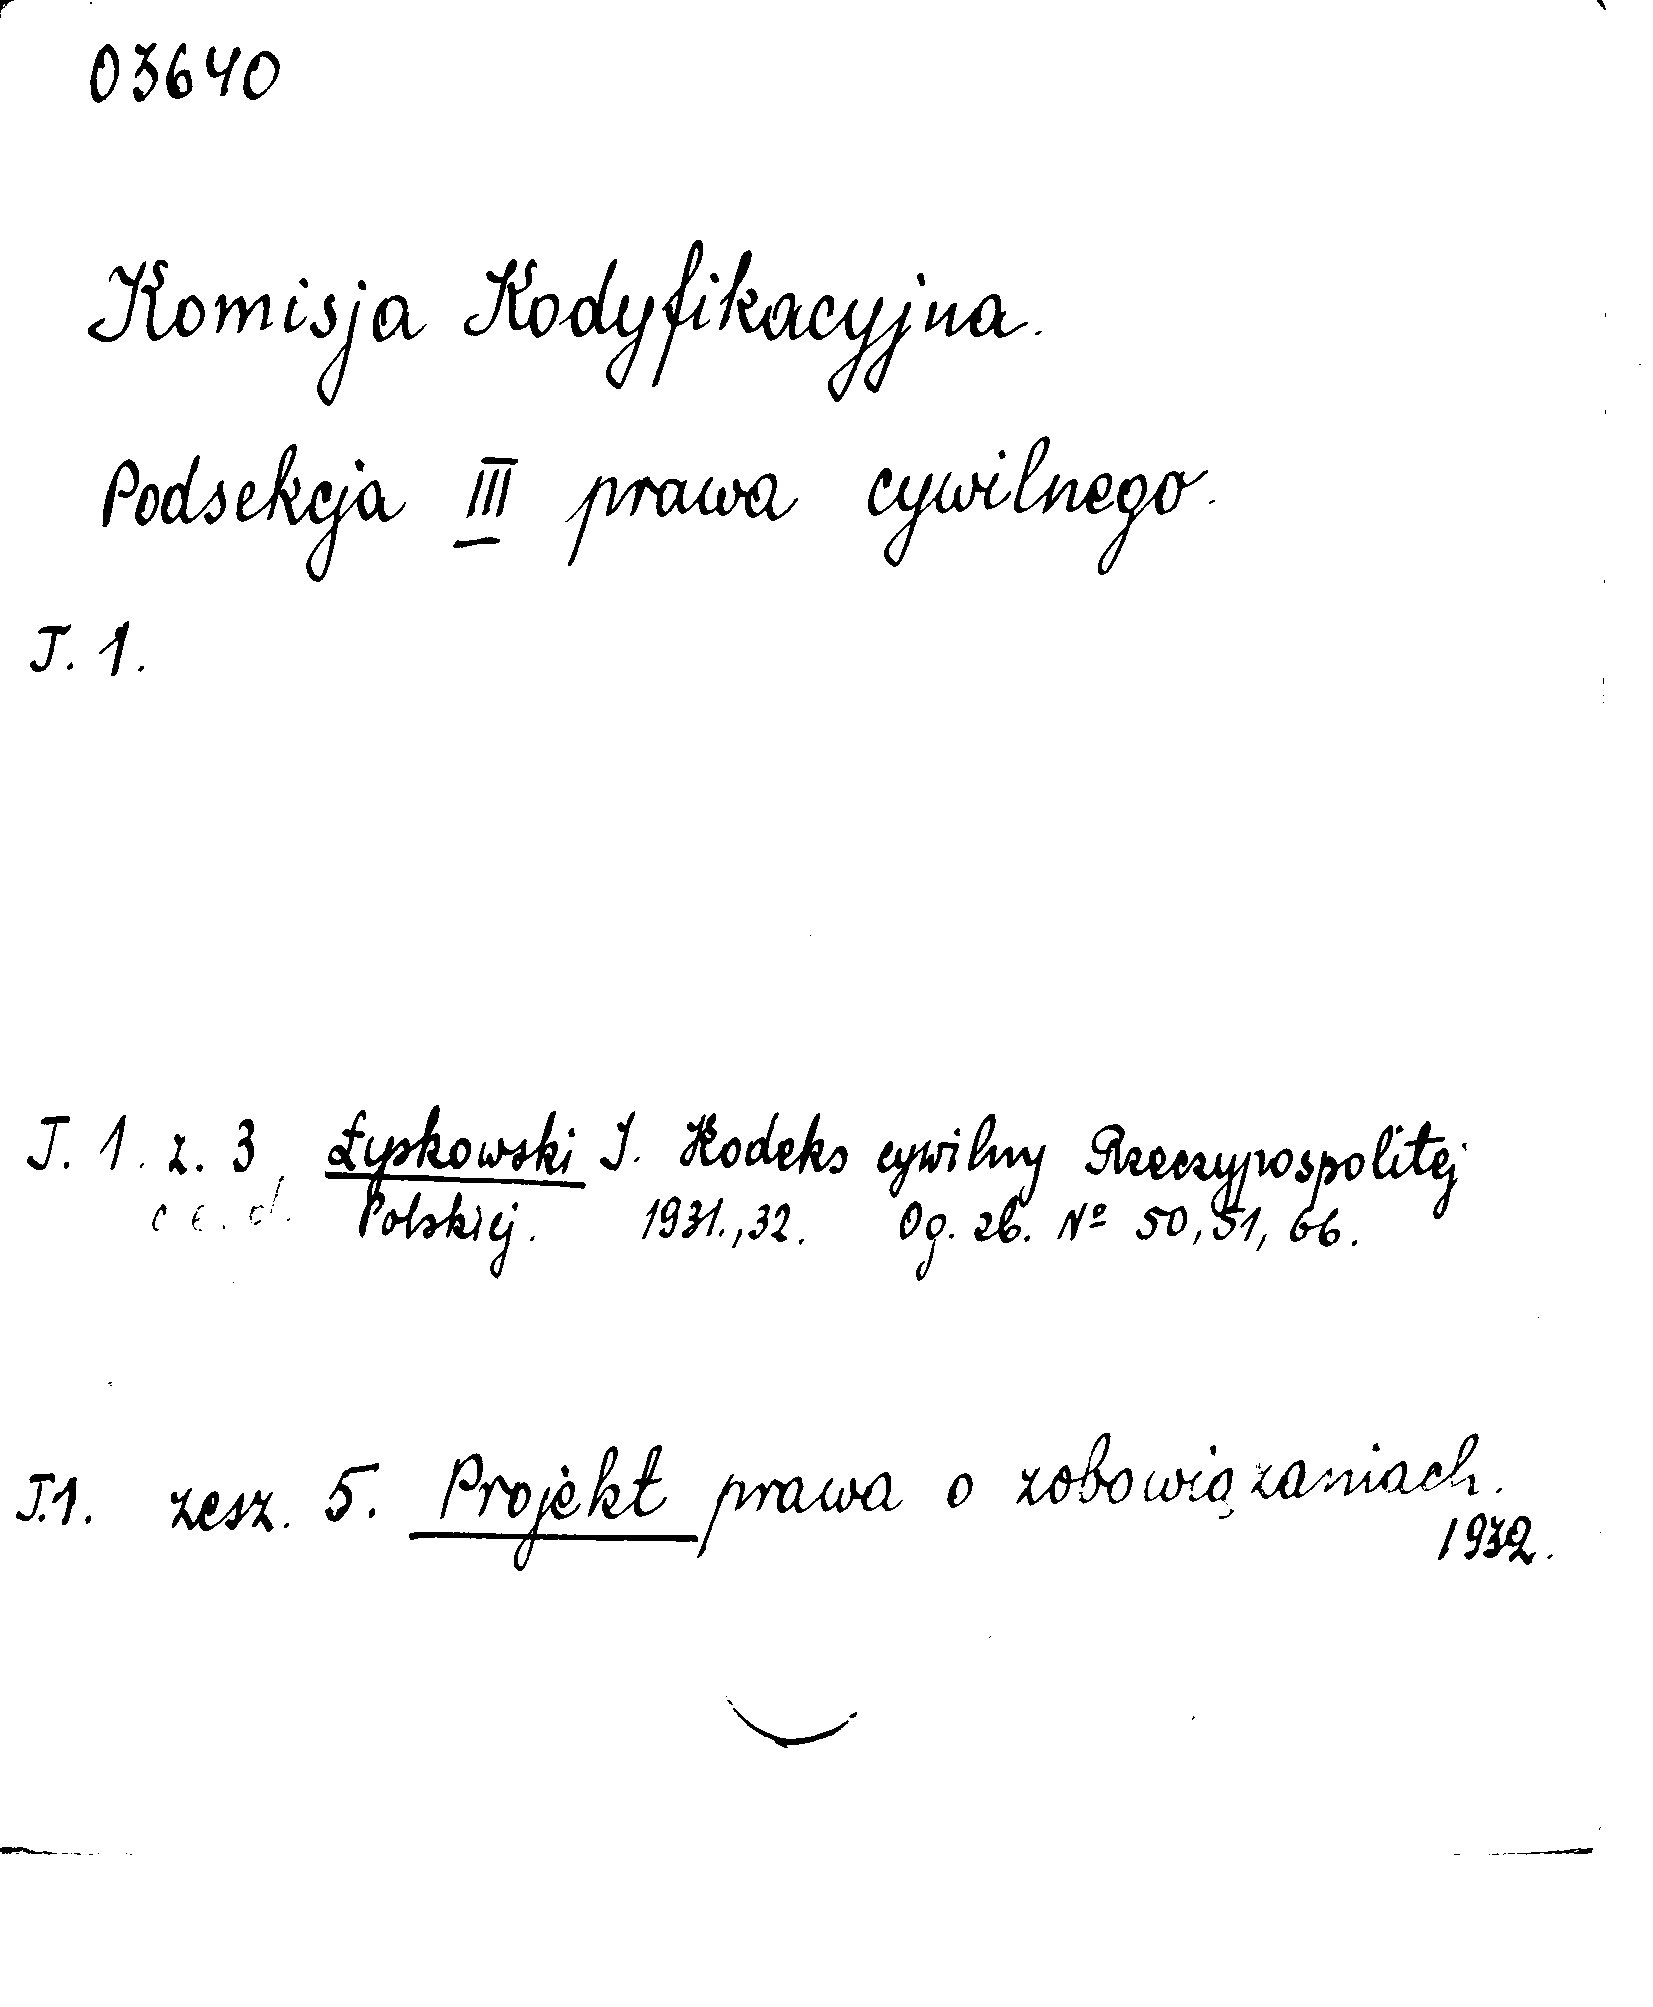 03640
Komisja Kodyfikacyjna.
Podsekcja III prawa cywilnego.
T. 1.
T. 1. z. 3 Łyskowski I. Kodeks cywilny Rzeczypospolitej
Polskiej. 1931.,32. Og. zb. Nº 50, 51, 66.
T.1. zesz. 5. Projekt prawa o zobowiązaniach.
1932.